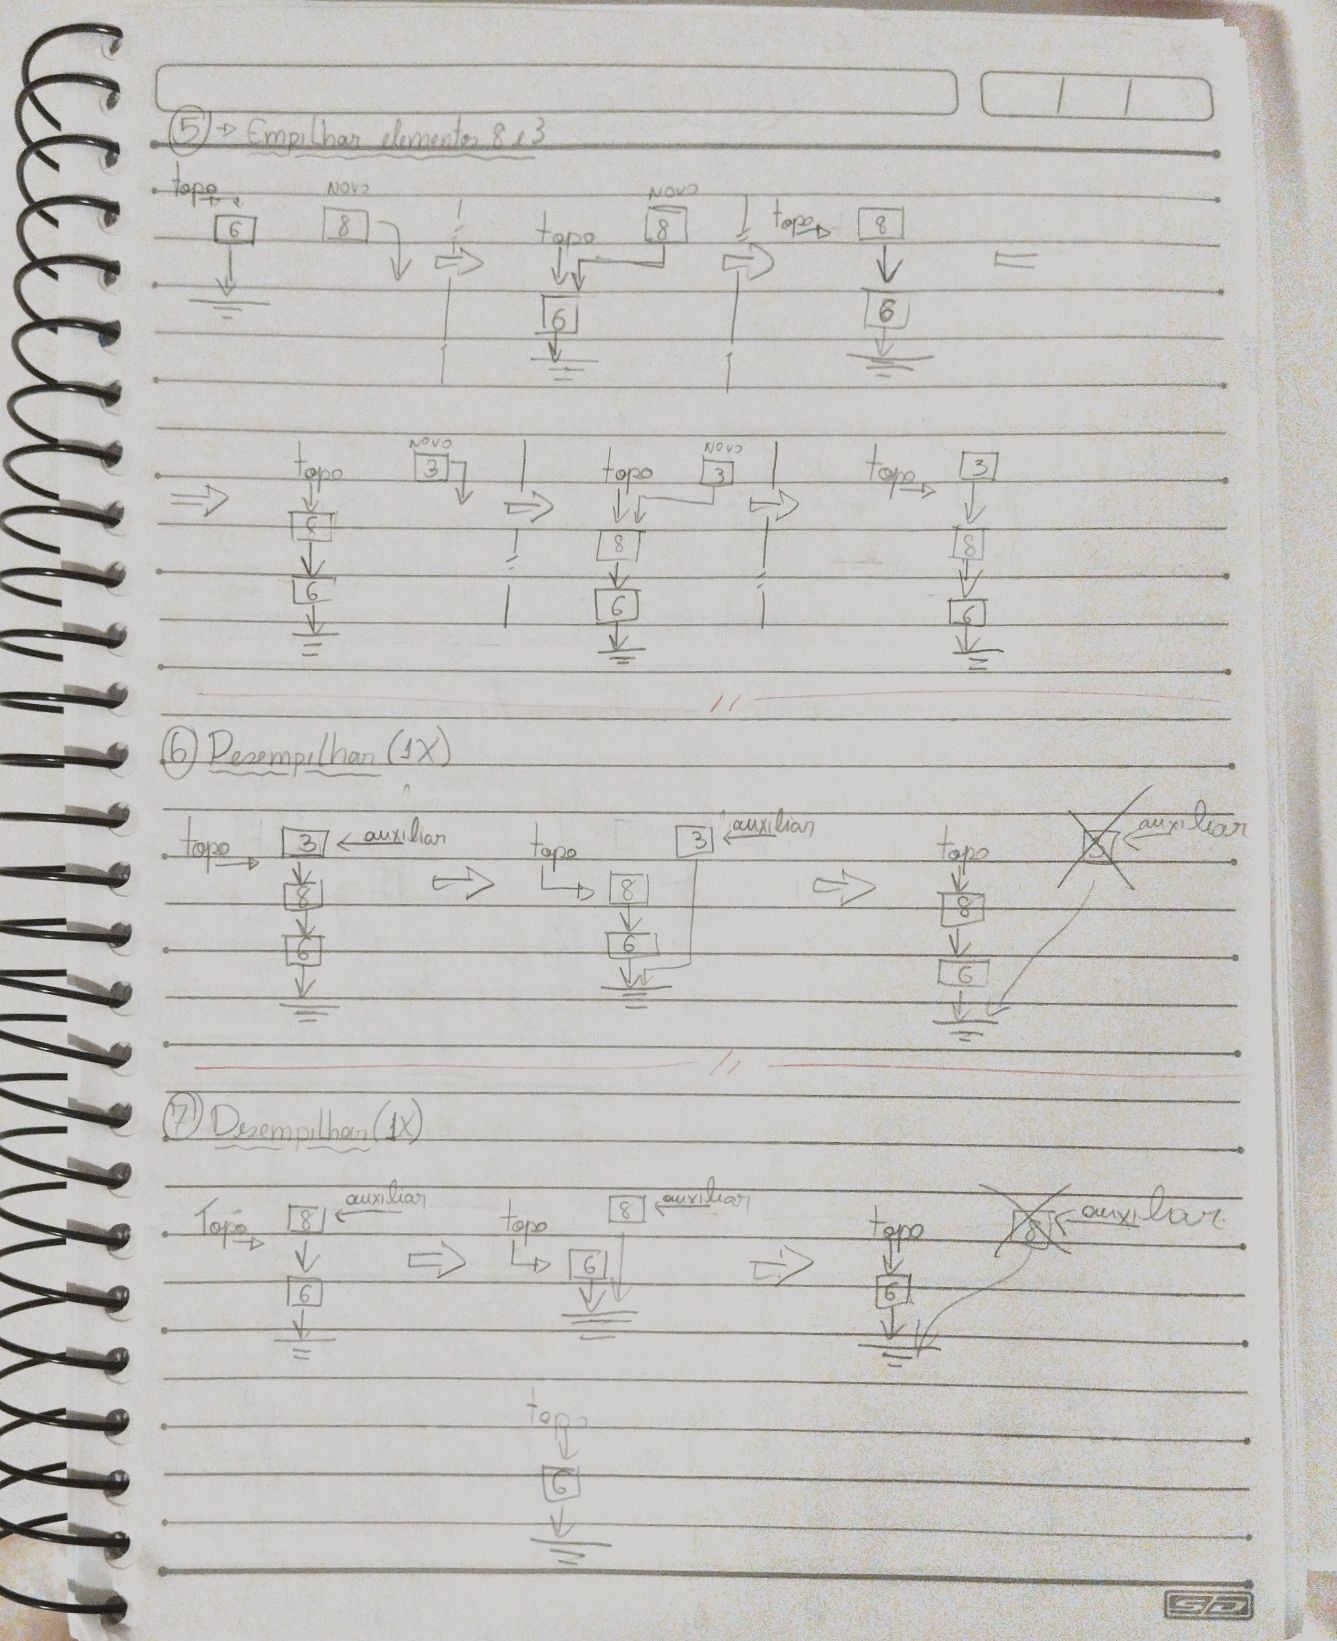 5 → Empilhar elementos 8 e 3
topo NOVO NOVO
6 8 topo 8 topo 8
6 6
topo NOVO topo NOVO topo 3
3 3
8 8
6 6 6
6 Desempilhar (1X)
topo 3 ← auxiliar topo 3 ← auxiliar topo 3 ← auxiliar
8 8 8
6 6 6
7 Desempilhar (1X)
Topo 8 ← auxiliar topo 8 ← auxiliar topo 8 ← auxiliar
6 6 6
topo
6
SD